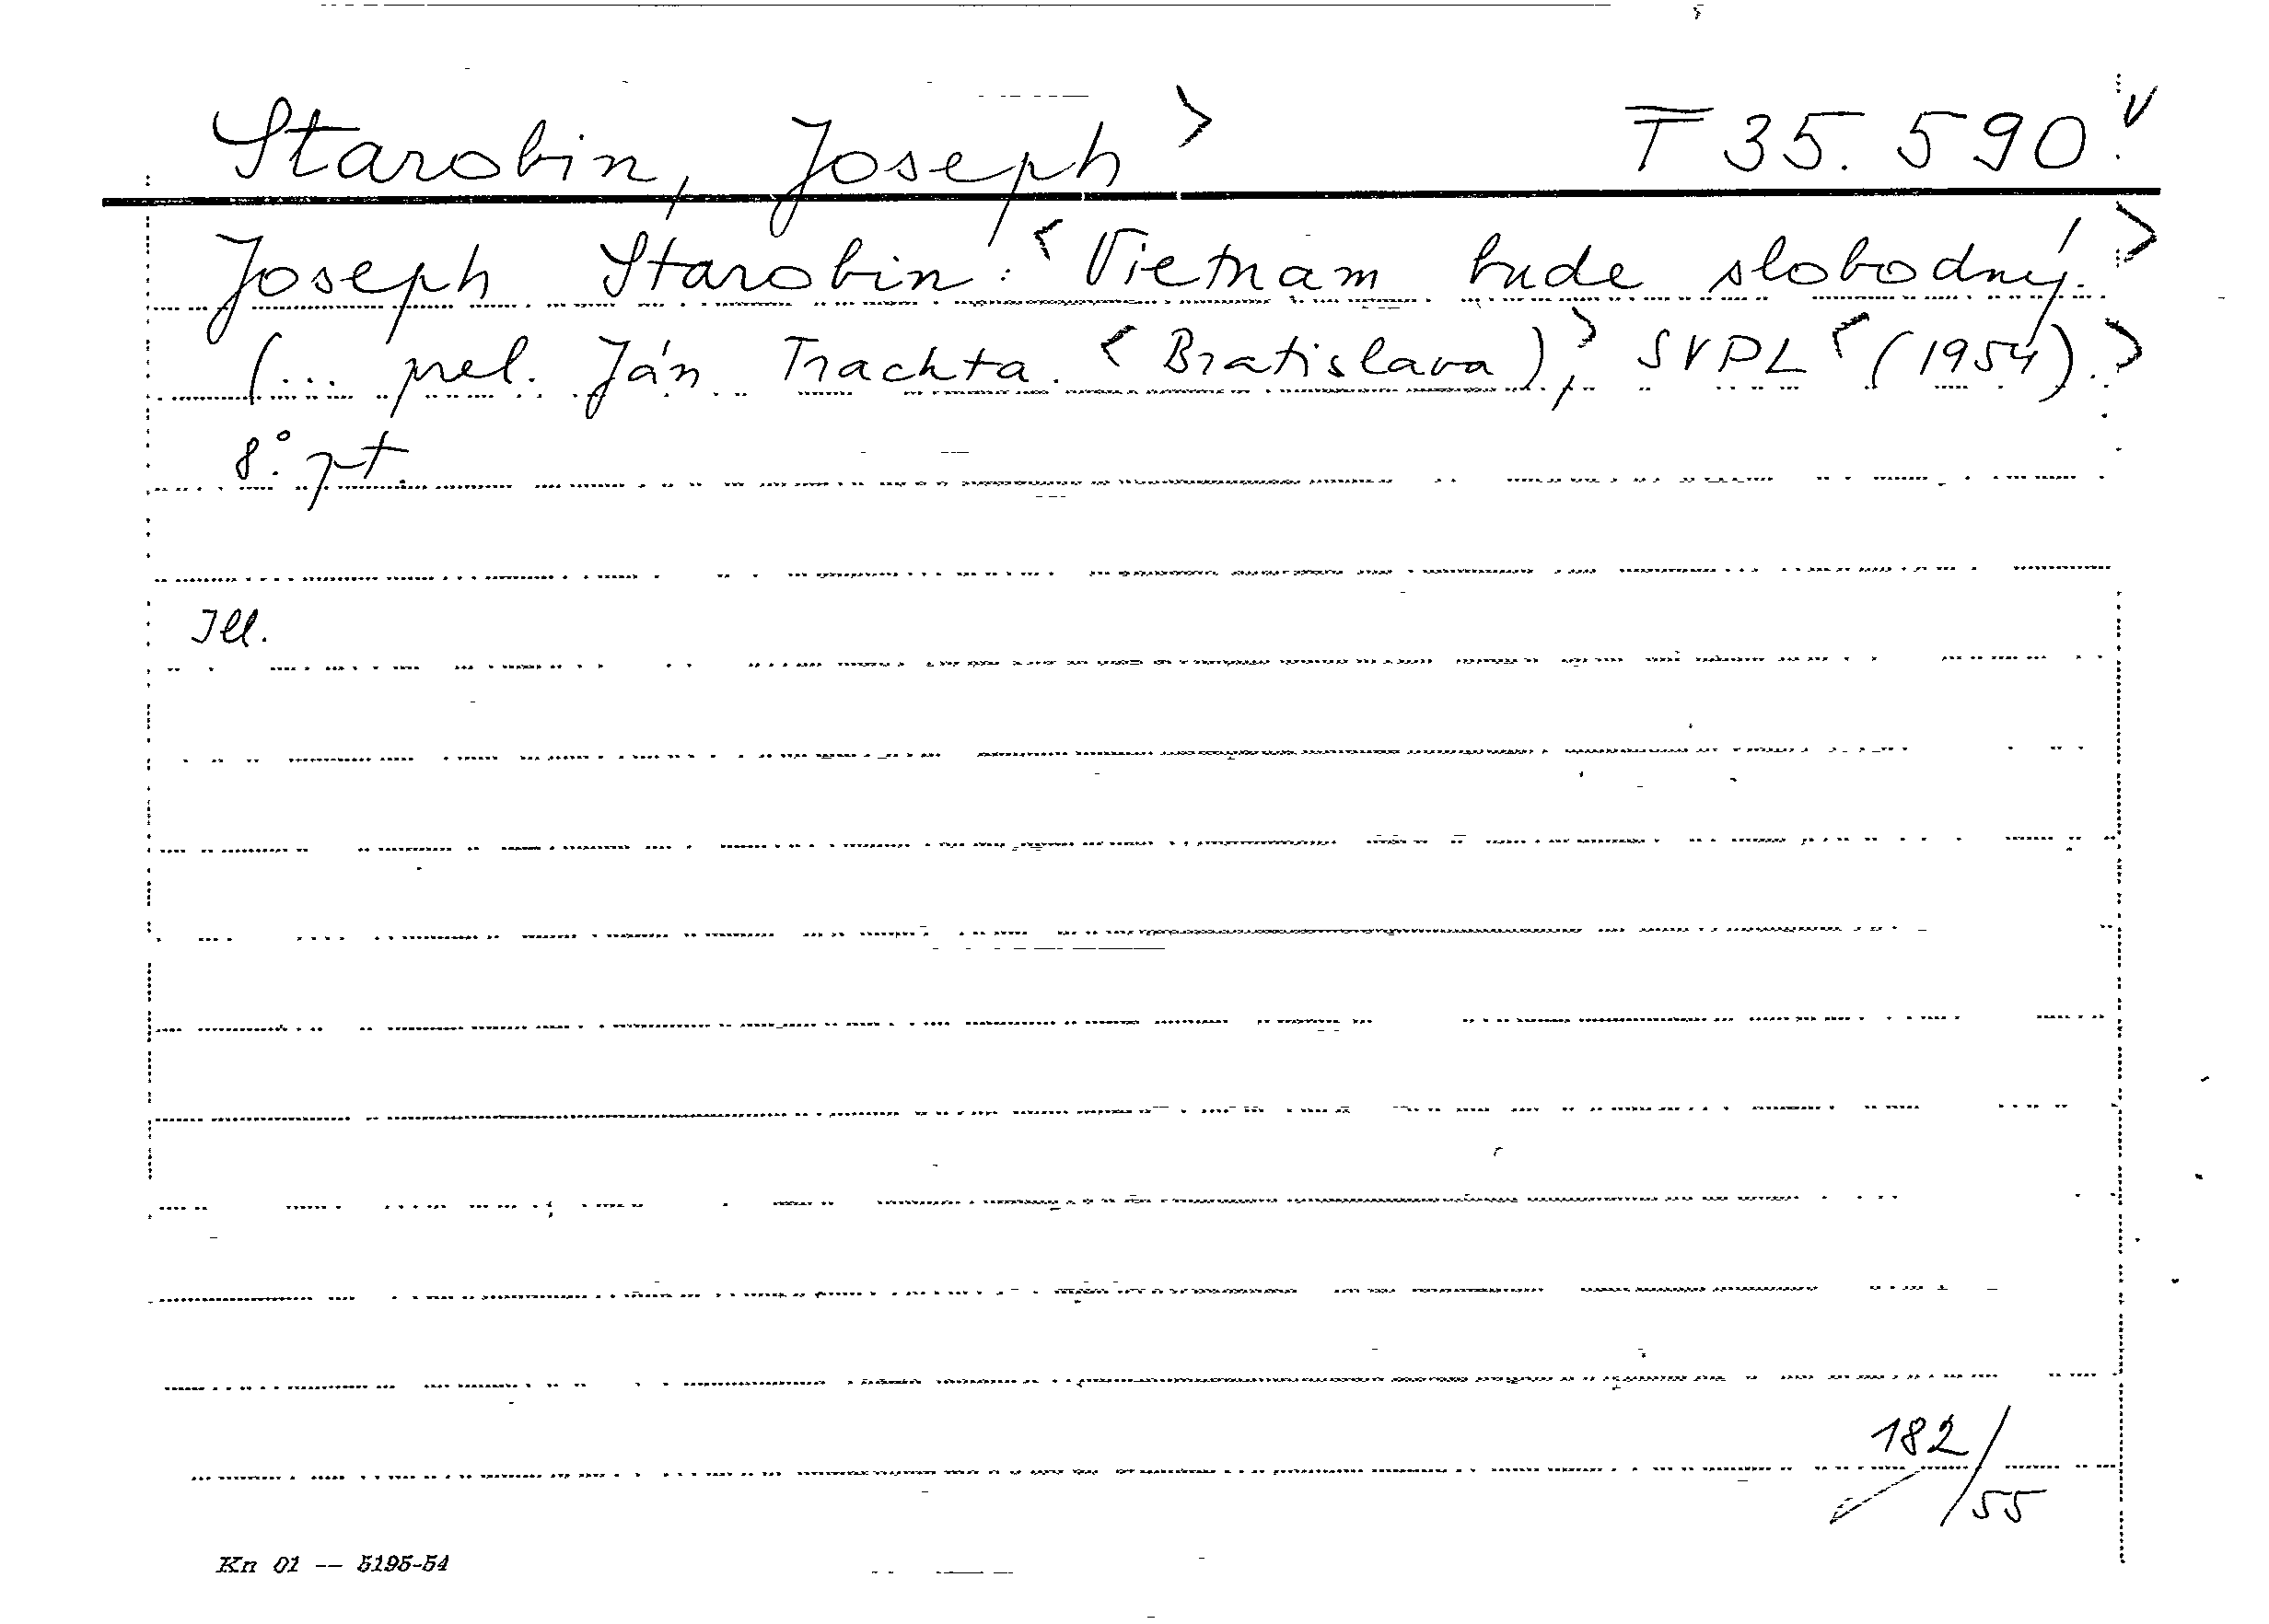 Starobin, Joseph> T 35.590. v
Joseph Starobin: <Vietnam bude slobodný.>
(... prel. Ján Trachta. <Bratislava),> SVPL <(1954).>
8°. pt.
Ill.
182/55
Kn 01 -- 5195-54